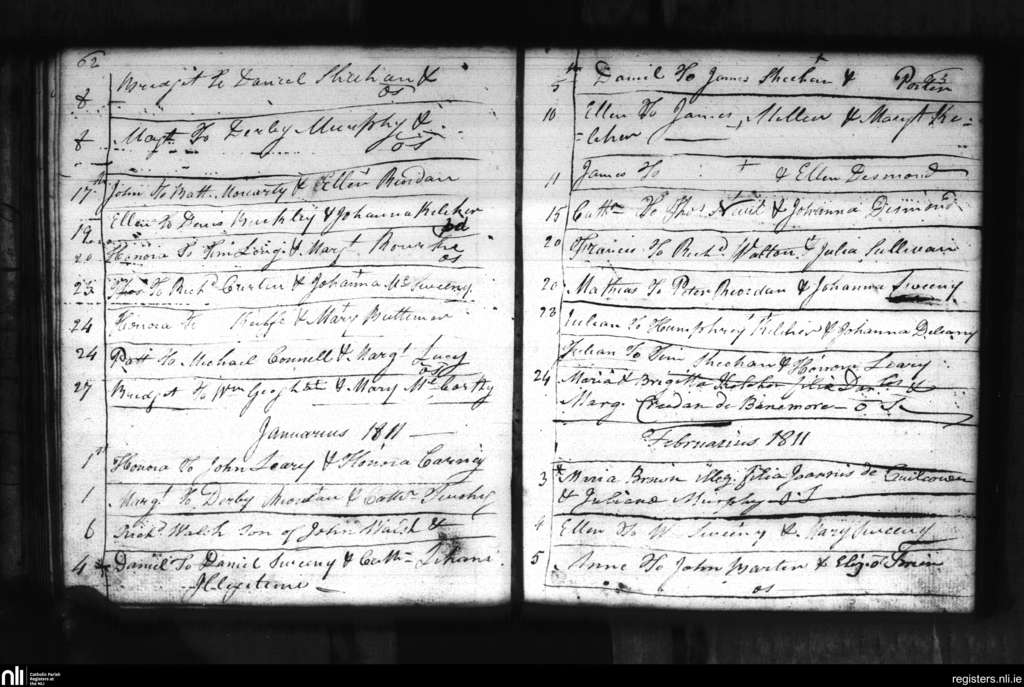 62
8 Bridgit to Daniel Shehan &
os
8 Mayt. To Derby Murphy &
os
17th John To Batt. Moriarty & Ellen Riordan
19 Ellen to Denis Buckley & Johanna Kelcher
pd
20 Honora To Tim Long & Margt. Rourke
os
23 Thos. To Richd. Curtin & Johanna McSweeny
24 Honora to Keeffe & Mary Buttemer
24 Patt To Michael Connell & Margt. Lucy
os
27 Bridget to Wm. & Mary McCarthy
Januarius 1811
1st Honora To John Leary & Honora Carney
1 Margt. To Derby Riordan & Cathn. Tuohy
6 Richd. Walsh Son of John Walsh &
4 Daniel To Daniel Sweeny & Cathn. Lehane
Illegitime
5 Daniel To James Sheehan &
10 Ellen To James Miller & Margt Ke-
-lcher
11 James To & Ellen Desmond
15 Cathn. To Thos. Nevil & Johanna Desmond
20 Francis To Richd. Walton & Julia Sullivan
20 Mathias To Peter Riordan & Johanna Sweeny
23 Julian To Humphrey Kelcher & Johanna Deleany
Julian To Tim Sheehan & Honora Leary
24 Maria & Brigitta
Marg. Creedan de Banamore o S
Februarius 1811
3 Maria Brown illeg. filia Joannis de
& Juliana Murphy
4 Ellen To W. Sweeny & Mary Sweeny
5 Anne To John & Eliz.
os
nli
Catholic Parish
Registers at
the NLI
registers.nli.ie